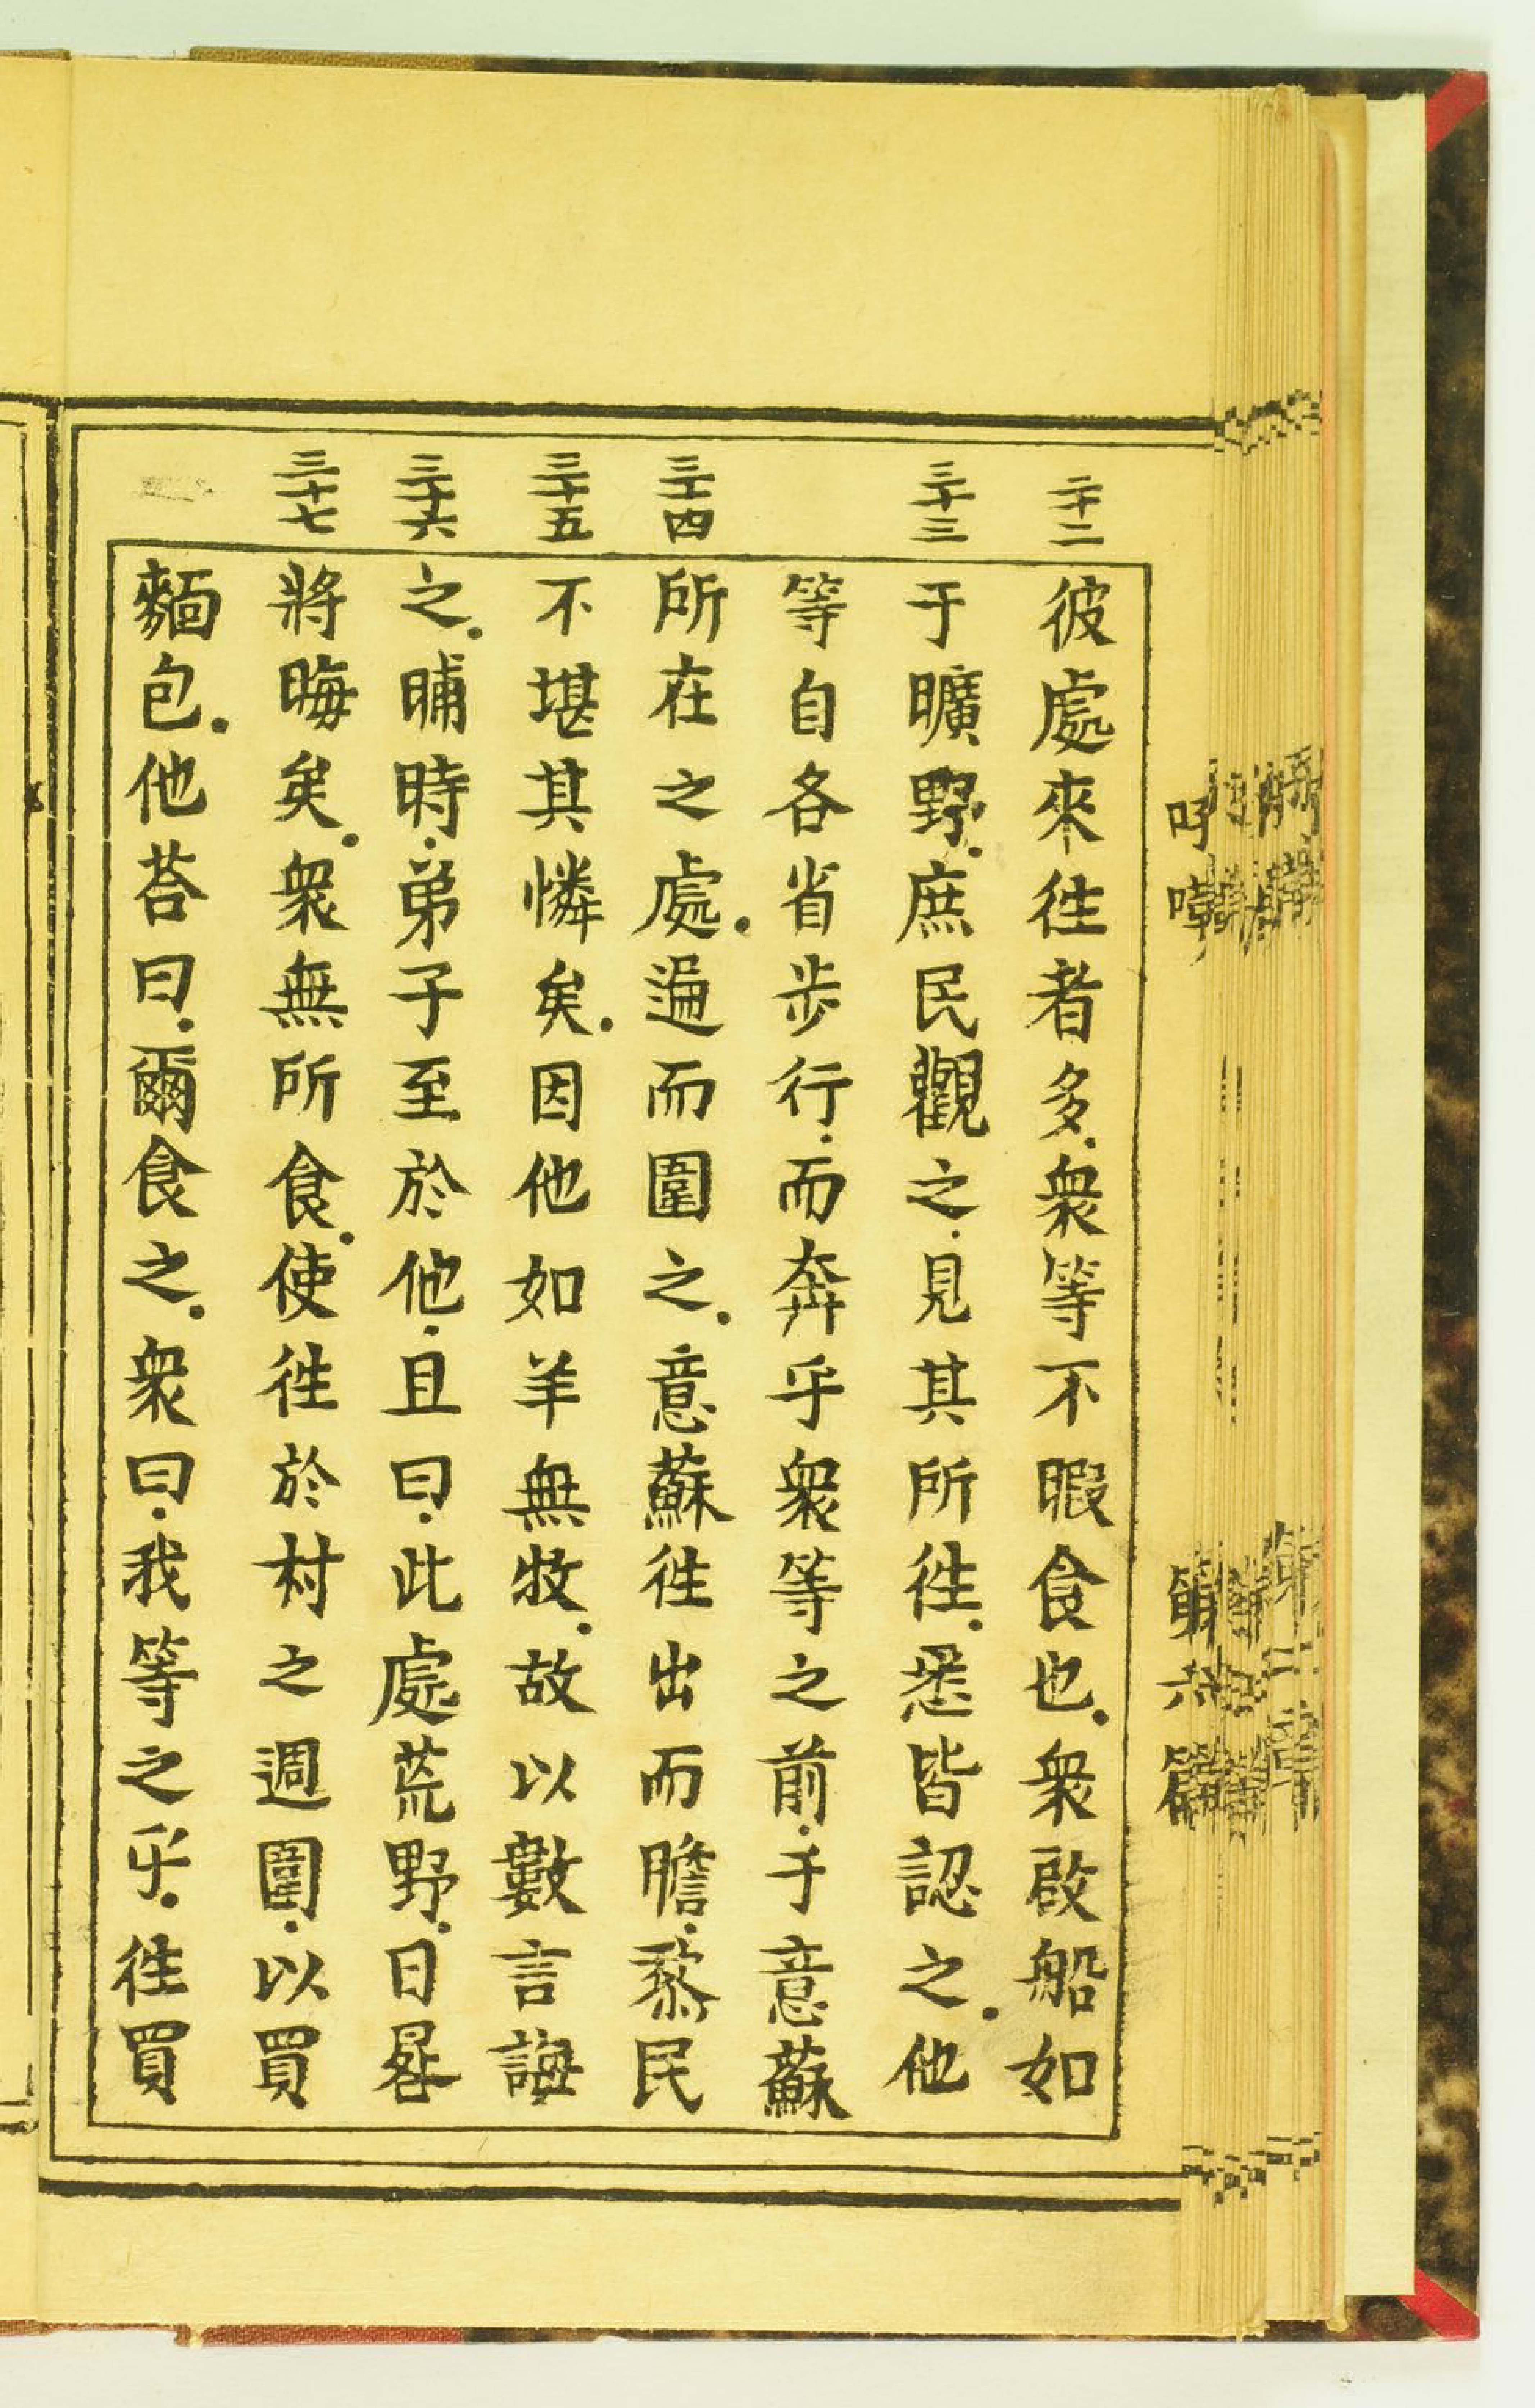 三十二
彼處來徃者多.衆等不暇食也.衆啟船如
三十三
于曠野.庶民觀之.見其所徃.悉皆認之.他
等自各省步行.而奔乎衆等之前.于意蘇
三十四
所在之處.遍而圍之.意蘇徃出而瞻.黎民
三十五
不堪其憐矣.因他如羊無牧.故以數言誨
三十六
之.晡時.弟子至於他.且曰.此處荒野.日晷
三十七
將晦矣.衆無所食.使徃於村之週圍.以買
麵包.他荅曰.爾食之.衆曰.我等之乎.徃買